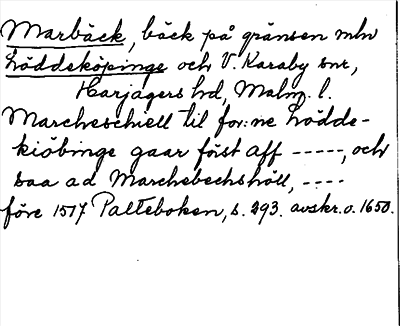 Marbäck, bäck på gränsen mln
Löddeköpinge och V. Karaby snr,
Harjagers hd, Malm. l.
Marcheschiell til for:ne Lödde-
kiöbinge gaar först aff -----, och
saa ad Marchebechshöll, ----
före 1517 Palteboken, s. 293. avskr. o. 1650.